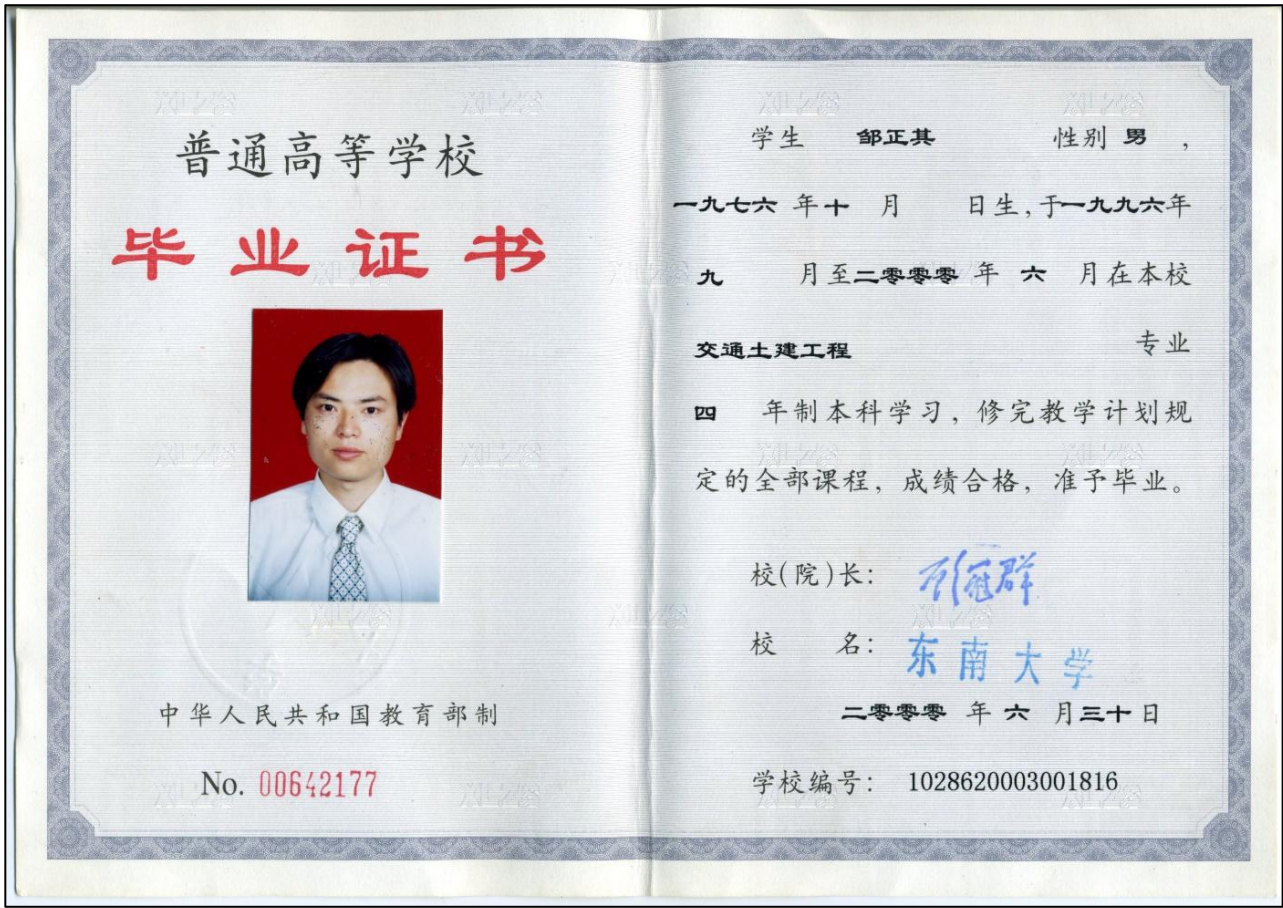 普通高等学校
毕业证书
中华人民共和国教育部制
No. 00642177
学生 邹正其 性别 男 ，
一九七六 年 十 月 日生，于一九九六年
九 月至二零零零 年 六 月在本校
交通土建工程 专业
四 年制本科学习，修完教学计划规
定的全部课程，成绩合格，准予毕业。
校(院)长：
校 名：东南大学
二零零零 年 六 月三十日
学校编号： 1028620003001816